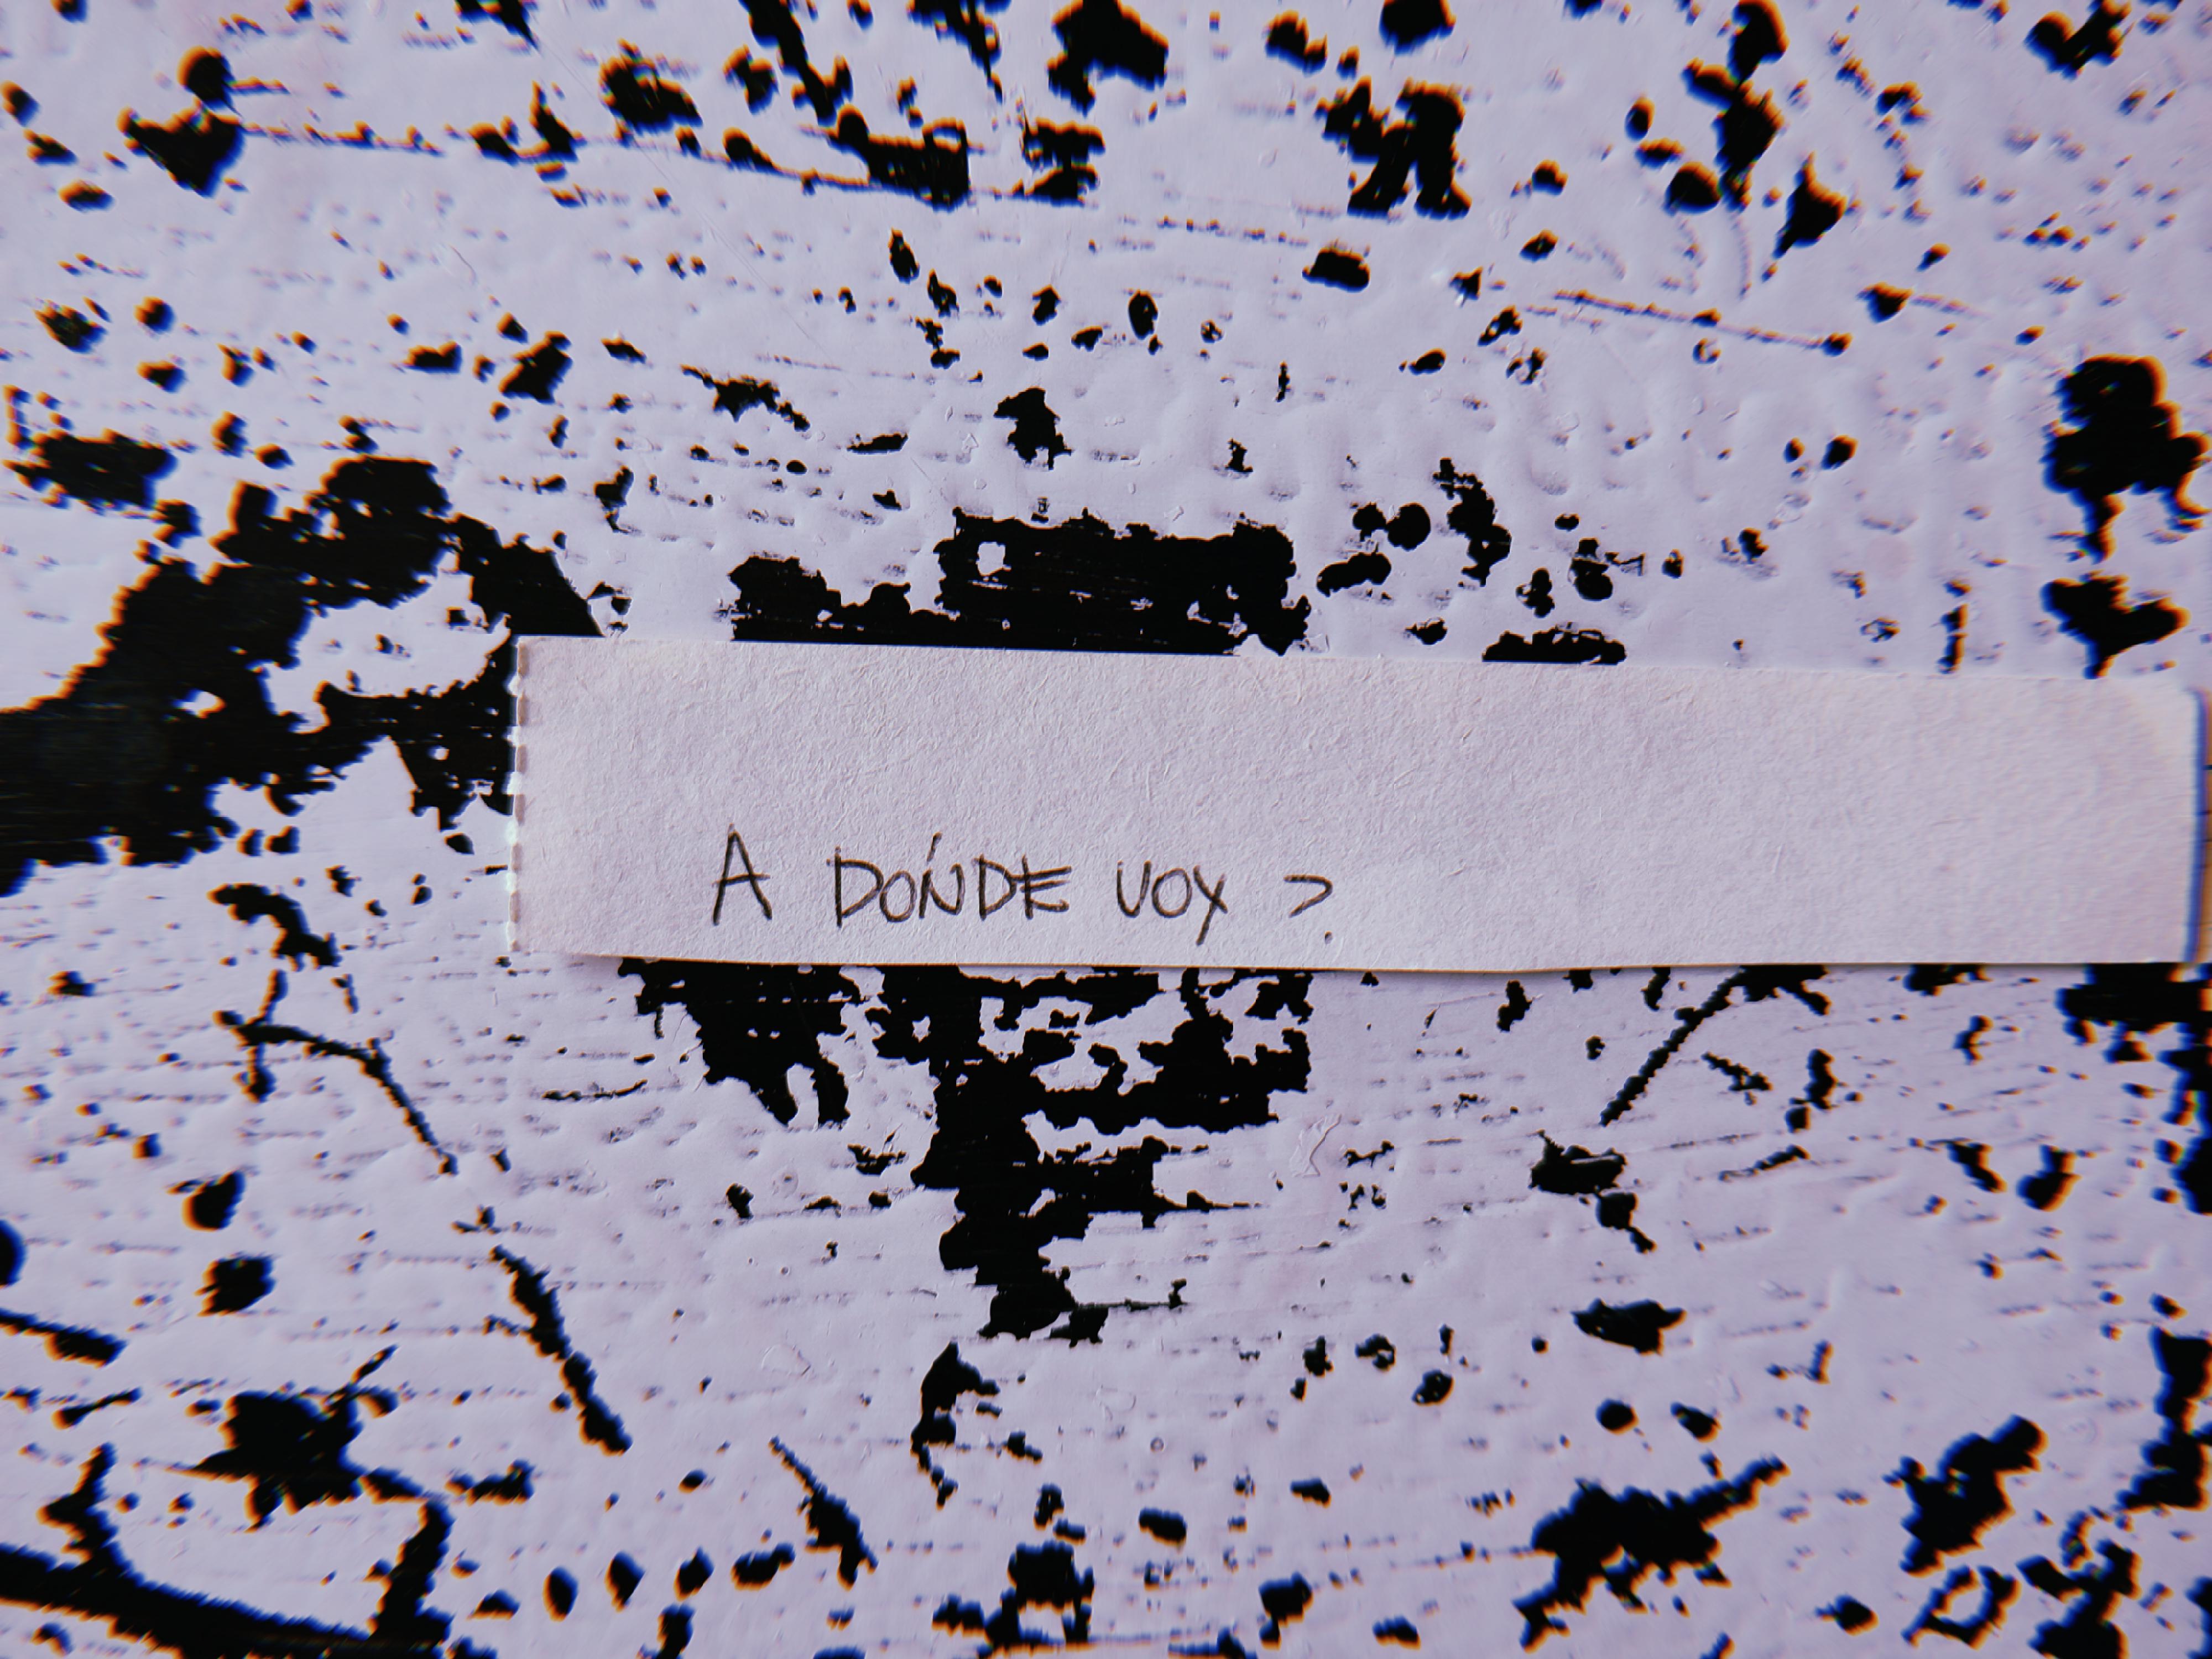 A DÓNDE VOY ?